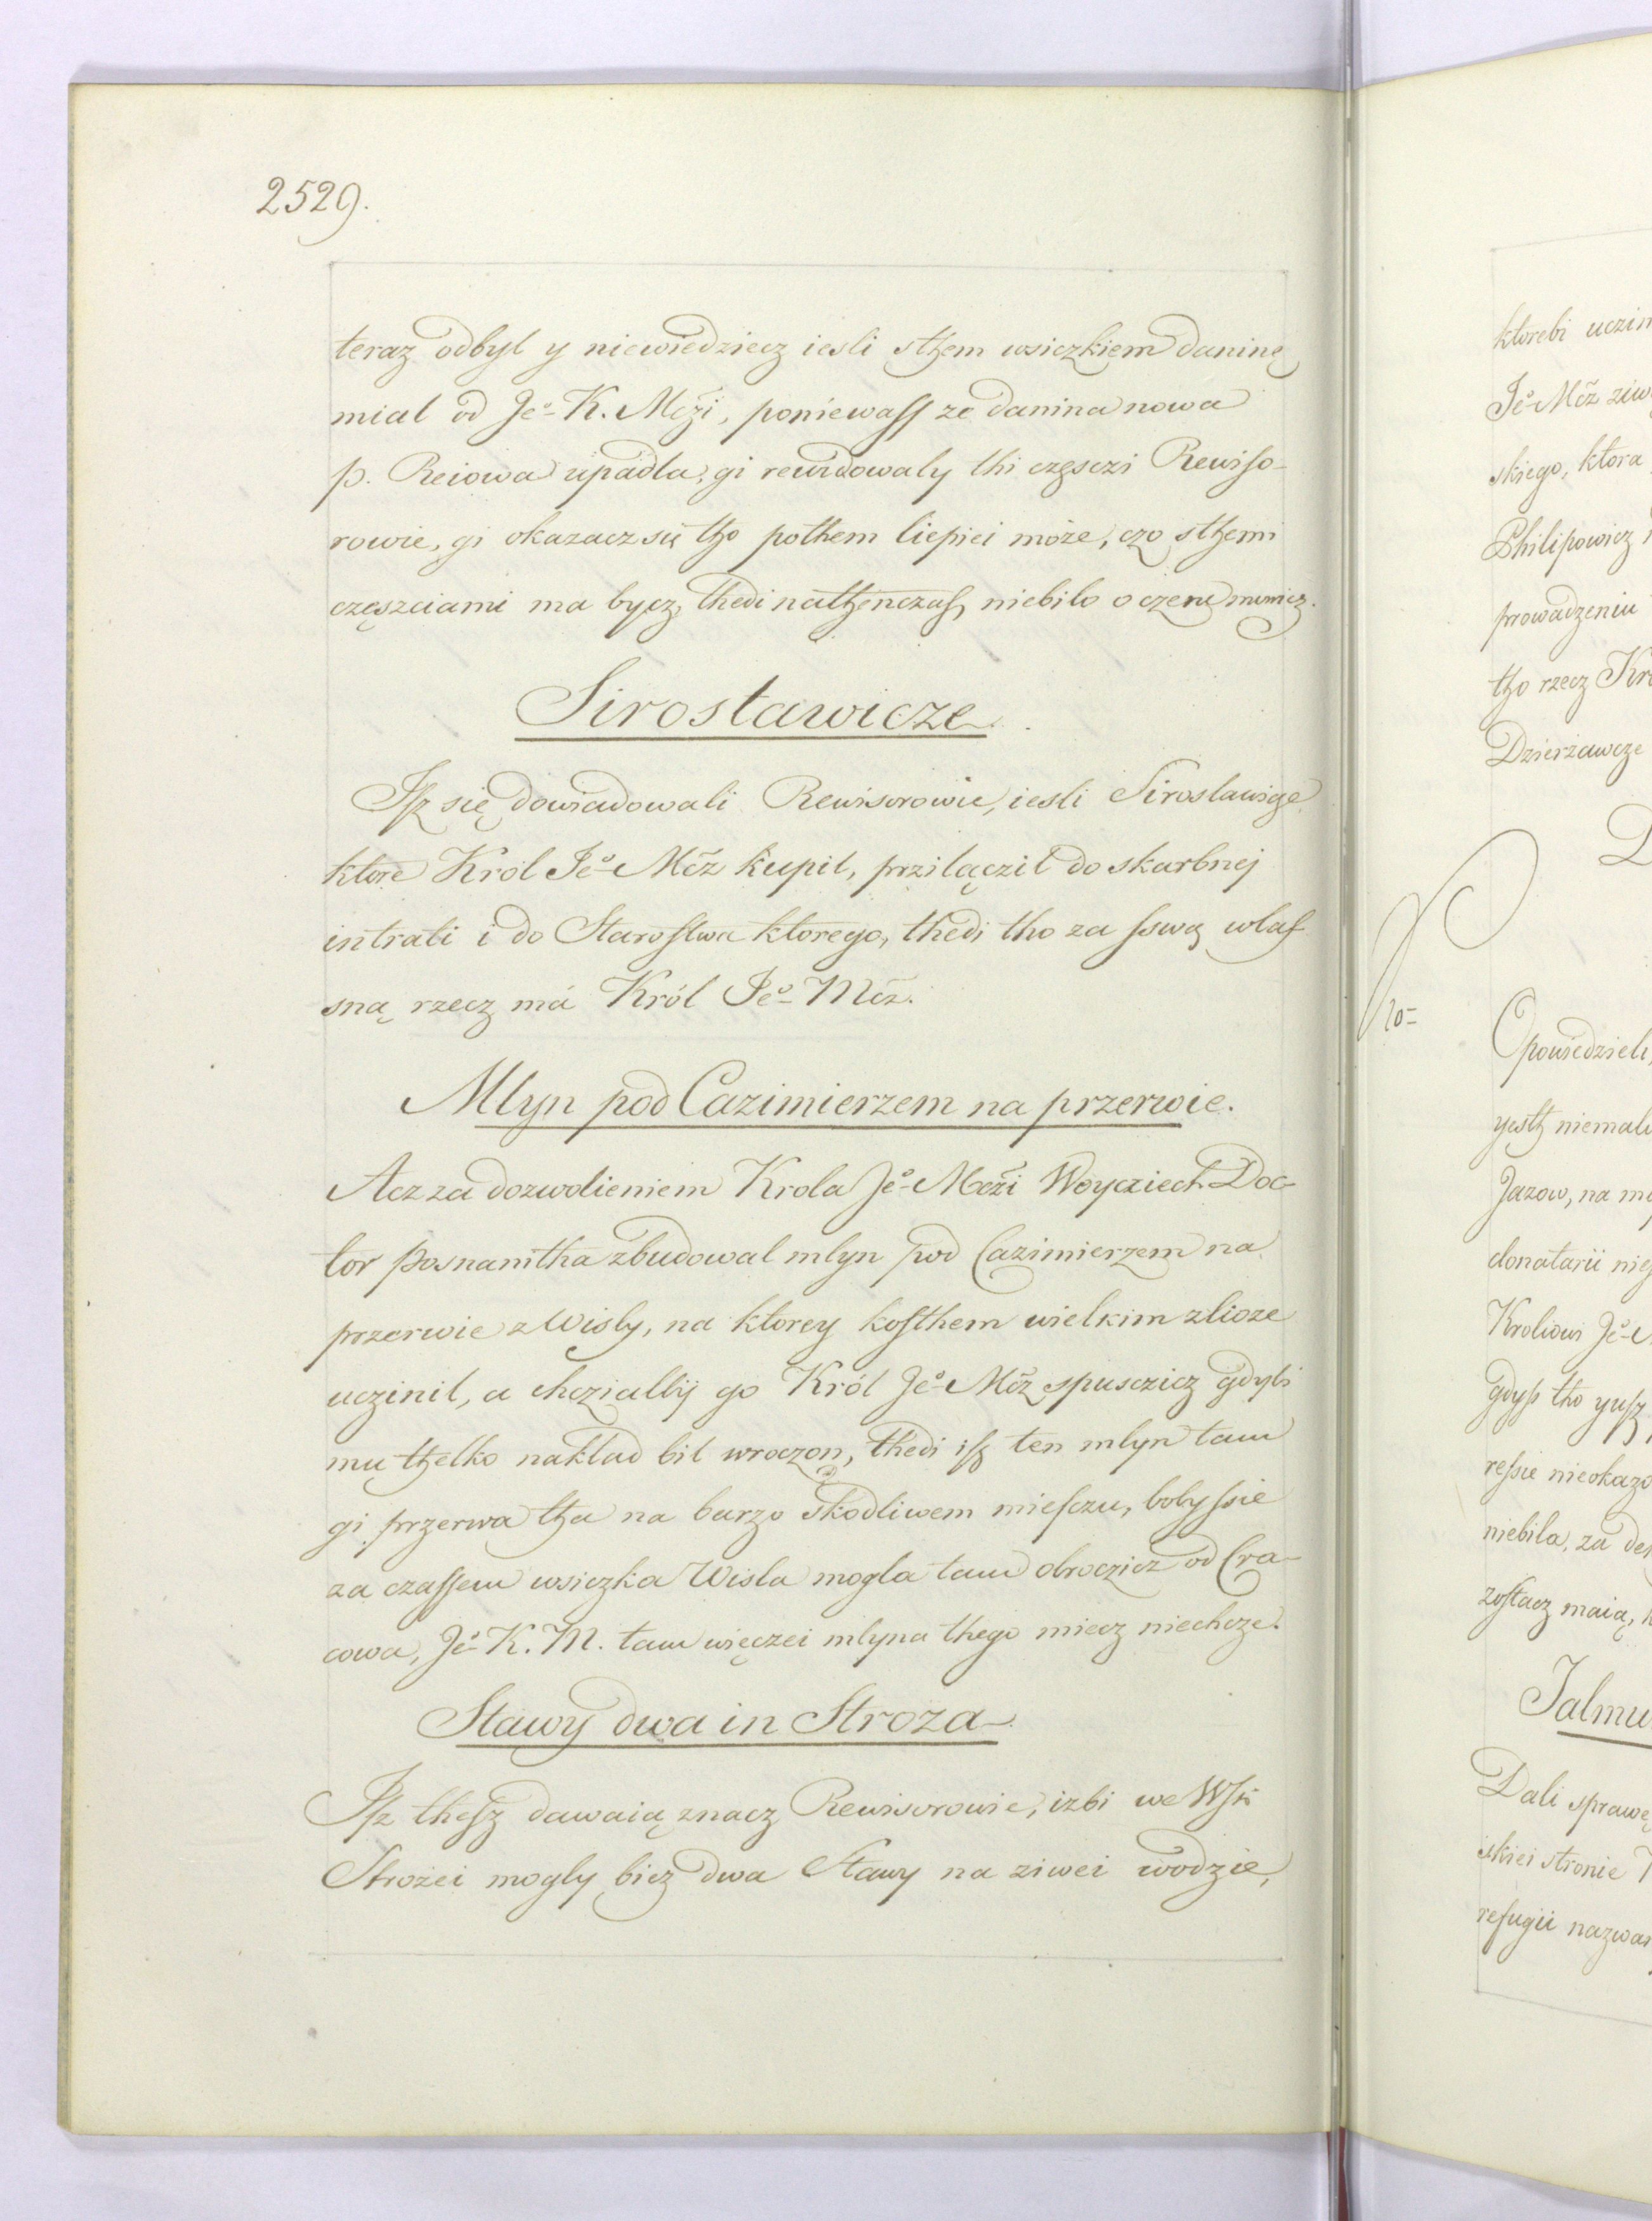 2529.
teraz odbyl y niewiedziecz iesli sthem wsiczkiem daninę
mial od Je⁰ K. Mczi, poniewaſſ ze danina nowa
p. Reiowa upadla, gi rewidowaly thi częsczi Rewiso-
rowie, gi okazacz się tho pothem liepiei może, czo sthemi
częszciami ma bycz, thedi nathenczaſ, niebilo o czem mowicz.
Siroslawicze
Iſz się dowiadowali Rewisorowie, iesli Siroslawicze
ktore Krol Je⁰ Mcz kupil, przilączil do skarbnej
intrati i do Staroſtwa ktorego, thedi tho za ſswą wlaſ
sną rzecz má Król Je⁰ Mcz.
Mlyn pod Cazimierzem na przerwie.
Acz za dozwolieniem Krola Je⁰ Mczi Woycziech Doc-
tor Posnanitha zbudowal mlyn pod Cazimierzem na
przerwie z Wisly, na ktorey koſthem wielkim zlioze
uczinil, a chczialbÿ go Król Je⁰ Mcz spusczicz gdybi
mu thelko naklad bil wroczon, thedi iſz ten mlyn tam
gi przerwa tha na barzo skodliwem mieſczu, boby ſsie
za czaſſem wsiczka Wisla mogla tam obroczicz od Cra-
cowa, Je⁰ K. M. tam więczei mlyna thego miecz niechcze.
Stawy dwa in Stroza
Iſz theſz dawaią znacz Rewisorowie, izbi we Wſi
Strożei mogly bicz dwa Stawy na ziwei wodzie,
ktorebi
Je⁰ Mcz
skiego, ktora
Philipowicz
prowadzeniu
tho rzecz
Dzierżawcze
Opowiedzieli,
yesth niemalo
Jazow, na
donatarii
Kroliowi Je⁰
gdyſs tho yuſz
reſsie nieokazo
niebila, za
zoſtacz maią,
Jalmu
Dali sprawę
skiei stronie
refugii nazwan